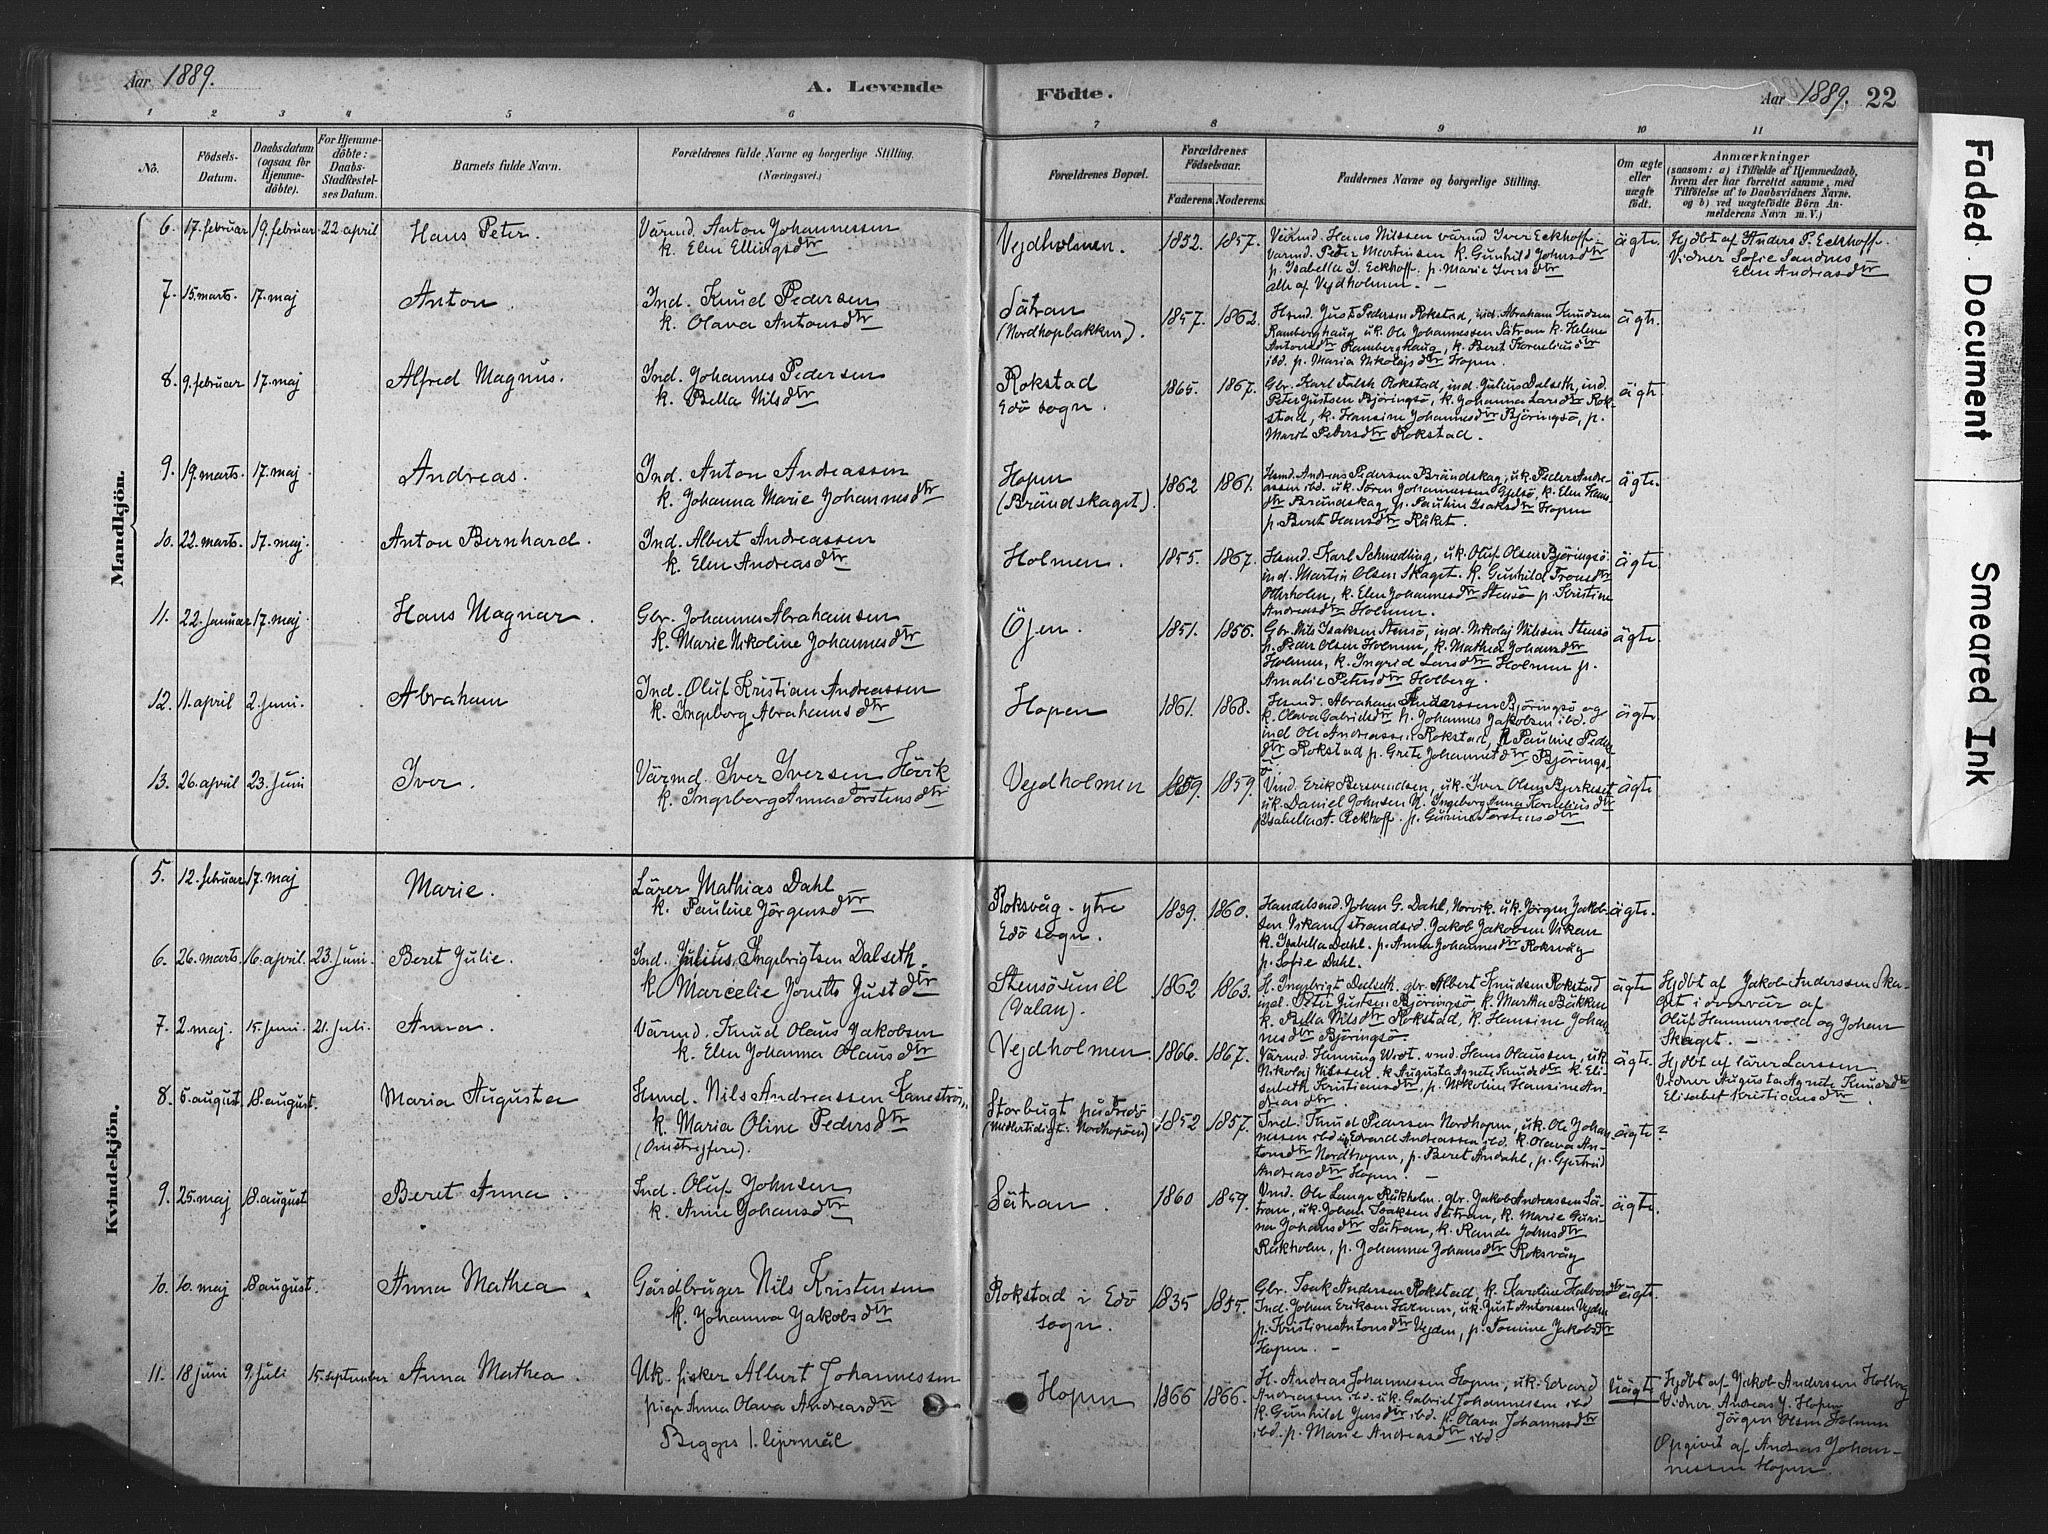 Aar 1889.
A. Levende Födte.
Aar 1889. 22
1 2 3 4 5 6 7 8 9 10 11
No.
Födsels-Datum.
Daabsdatum (ogsaa for Hjemmedöbte).
For Hjemmedöbte: Daabs-Stadfæstelses Datum.
Barnets fulde Navn.
Forældrenes fulde Navne og borgerlige Stilling. (Næringsvei.)
Forældrenes Bopæl.
Forældrenes Födselsaar.
Faderens. Moderens.
Faddernes Navne og borgerlige Stilling.
Om ægte eller uægte födt.
Anmærkninger
(saasom: a) i Tilfælde af Hjemmedaab, hvem der har forrettet samme, med Tilföielse af to Daabsvidners Navne, og b) ved uægtefödte Börn Anmelderens Navn m. V.)
Mandkjön.
6. 17. februar 19. februar 22. april Hans Peter.
Värmd. Anton Johannessen
k. Elen Ellingsdtr
Vejdholmen. 1852. 1857.
Värmd. Hans Nilssen värmd Iver Eckhoff
Värmd. Peder Martinsen k. Gunhild Johnsdtr
p. Isabella J. Eckhoff. p. Marie Iversdtr
alle af Vejdholmen. —
ägte.
Hjdbt af Anders P. Eckhoff
Vidner Sofie Sandnes
Elen Andreasdtr
7. 15. marts. 17. maj Anton.
Ind. Knud Pedersen
k. Olava Antonsdtr
Sätran
(Nordhopbakken).
1857. 1862.
Hsmd. Just Pedersen Rokstad, ind. Abraham Knudsen
Ramberghaug, uk. Ole Johannessen Sätran k. Helene
Antonsdtr Ramberghaug, k. Beret Korneliusdtr
ibd. p. Maria Nikolajsdtr Hopen.
ägte.
8. 9. februar 17. maj Alfred Magnus.
Ind. Johannes Pedersen
k. Bella Nilsdtr
Rokstad
Edö sogn.
1865. 1867.
Gbr. Karl Falth Rokstad, ind. Julius Dalseth, ind.
Peter Justsen Björingsö, k. Johanna Larsdtr Rok-
stad, k. Hansine Johannesdtr Björingsö, p.
Marit Petersdtr Rokstad.
ägte.
9. 19. marts. 17. maj Andreas.
Ind. Anton Andreassen
k. Johanna Marie Johannesdtr
Hopen
(Brändskaget).
1862 1861.
Hsmd. Andreas Pedersen Brändskag, uk. Peder Andre-
assen ibd. uk. Sören Johannessen Gjelsö, k. Elen Hans-
dtr Brändskag, p. Pauline Isaksdtr Hopen
p. Beret Hansdtr Råket.
ägte.
10. 22. marts. 17. maj. Anton Bernhard.
Ind. Albert Andreassen
k. Elen Andreasdtr
Holmen. 1855. 1867.
Hsmd. Karl Schmedling, uk. Oluf Olsen Björingsö
ind. Martin Olsen Skaget. k. Gunhild Tronsdtr
Otterholm, k. Elen Johannesdtr Stensö p. Kristine
Andreasdtr Holmen.
ägte.
11. 22. Januar 17. maj. Hans Magnar.
Gbr. Johannes Abrahamsen
k. Marie Nikoline Johannesdtr
Öjen. 1851. 1856.
Gbr. Nils Isaksen Stensö, ind. Nikolaj Nilssen Stensö
p. Peder Olsen Holmen, k. Mathea Johansdtr
Holmen, k. Ingrid Larsdtr Holmen p.
Amalie Petersdtr Holberg.
ägte.
12. 11. april 2. juni. Abraham
Ind. Oluf Kristian Andreassen
k. Ingeborg Abrahamsdtr
Hopen 1861. 1868.
Hsmd. Abraham Anderssen Björingsö og
k. Olava Gabrielsdtr p. Johannes Jakobsen ibd.
ind Ole Andreassen Rokstad, k. Pauline Peder
dtr Rokstad p. Grete Johannesdtr Björings-
ö
ägte.
13. 26. april 23. juni Iver.
Värmd. Iver Iversen Hövik
k. Ingeborg Anna Torstensdtr
Vejdholmen 1859. 1859.
Vmd. Erik Bersvendsen, uk. Iver Olsen Bjerkeset
uk. Daniel Johnsen N. Ingeborg Anna Korneliusdtr
Isabella A. Eckhoff. p. Gurine Torstensdtr
ägte
Kvindekjön.
5. 12. februar 17. maj Marie.
Lärer Mathias Dahl
k. Pauline Jörgensdtr
Roksvåg - ytre
Edö sogn.
1839. 1860.
Handelsmd. Johan G. Dahl, Norvik. uk. Jörgen Jakob-
sen Vikan, strandsid. Jakob Jakobsen Vikan
k. Isabella Dahl. p. Anna Johannesdtr Roksvåg
p. Sofie Dahl.
ägte.
6. 26. marts. 16. april. 23. juni. Beret Julie.
Ind. Julius Ingebrigtsen Dalseth.
k. Marcelie Jonette Justdtr
Stensösund
(Valan).
1862 1863.
H. Ingebrigt Dalseth. gbr. Albert Knudsen Rokstad
ind. Peter Justsen Björingsö k. Martha Bakken
k. Bella Nilsdtr Rokstad, k. Hansine Johan-
nesdtr Björingsö.
ägte
Hjdbt af Jakob Anderssen Ska-
get i overvär af
Oluf Hammervold og Johan
Skaget. —
7. 2. maj. 15. juni. 21. juli. Anna.
Värmd. Knud Olaus Jakobsen
k. Elen Johanna Olausdtr
Vejdholmen. 1866. 1867.
Värmd. Henning Wirt, vmd. Hans Olaussen, uk.
Nikolaj Nilssen. k Augusta Agnete Knudsdtr k. Eli-
sabeth Kristiansdtr, p. Nikoline Hansine An-
dreasdtr.
ägte.
Hjdbt af lärer Larssen.
Vidner Augusta Agnete Knudsdtr
Elisabet Kristiansdtr.
8. 5. august. 18. august. Maria Augusta
Hsmd. Nils Andreassen Kaneström
k. Maria Oline Pedersdtr
(Omstrejfere).
Storbugt på Fredö
(midlertidigt: Nordhopöen)
1852 1857.
Ind. Knud Pedersen Nordhopen, uk. Ole Johan
nessen ibd. uk Edvard Andreassen ibd. k. Olava An-
tonsdtr Nordhopen, p. Beret Andahl, p. Gjertrud
Andreasdtr Hopen. —
ägte?
9. 25. maj 18. august Beret Anna.
Ind. Oluf Johnsen
k. Anne Johansdtr
Sätran. 1860 1859.
Vmd. Ole Lange Råkholm. gbr. Jakob Andreassen Sä-
tran, uk. Johan Isaksen Sätran, k. Marie Guri-
na Johansdtr Sätran, k. Randi Johnsdtr
Råkholm, p. Johanna Johansdtr Roksvåg
ägte.
10. 10. maj 18. august. Anna Mathea.
Gårdbruger Nils Kristensen
k. Johanna Jakobsdtr
Rokstad i Edö
sogn.
1835 1855.
Gbr. Isak Andersen Rokstad, k. Karoline Halvorsdtr
Ind. Johan Eriksen Farmen, uk. Just Antonsen Vejden
p. Kristine Antonsdtr Vejden, p. Tomine Jakobsdtr
Hopen. —
ägte.
11. 18 juni 9. juli 15. september Anna Mathea.
Uk. fisker Albert Johannessen
pige Anna Olava Andreasdtr
Begges 1. lejermål
Hopen 1866 1866.
H. Andreas Johannessen Hopen, uk. Edvard
Andreassen ibd. uk. Gabriel Johannessen ibd
k. Gunhild Jensdtr ibd. p. Olava Johannesdtr
ibd. p. Marie Andreasdtr ibd.
Uägte
Hjdbt af Jakob Anderssen Holberg
Vidner Andreas J. Hopen
Jörgen Olsen Holmen
Opgivet af Andreas Johan-
nessen Hopen.
Faded Document
Smeared Ink